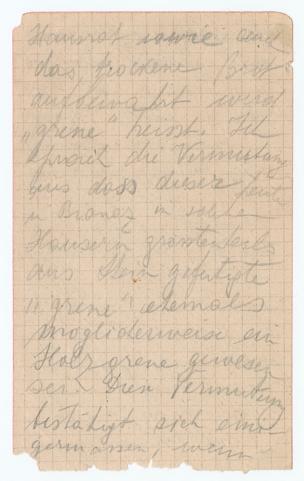 Hausrat sowie auch
das trockene Brot
aufbewahrt wird
„grene" heisst. Ich
sprach die Vermutung
aus dass dieser heute
in solchen
Häusern grösstenteils
aus Stein gefertigte
"grene" ehemals
möglicherweise ein
Holzgrene gewesen
sei. Diese Vermutung
bestätigt sich eini-
germassen, wenn